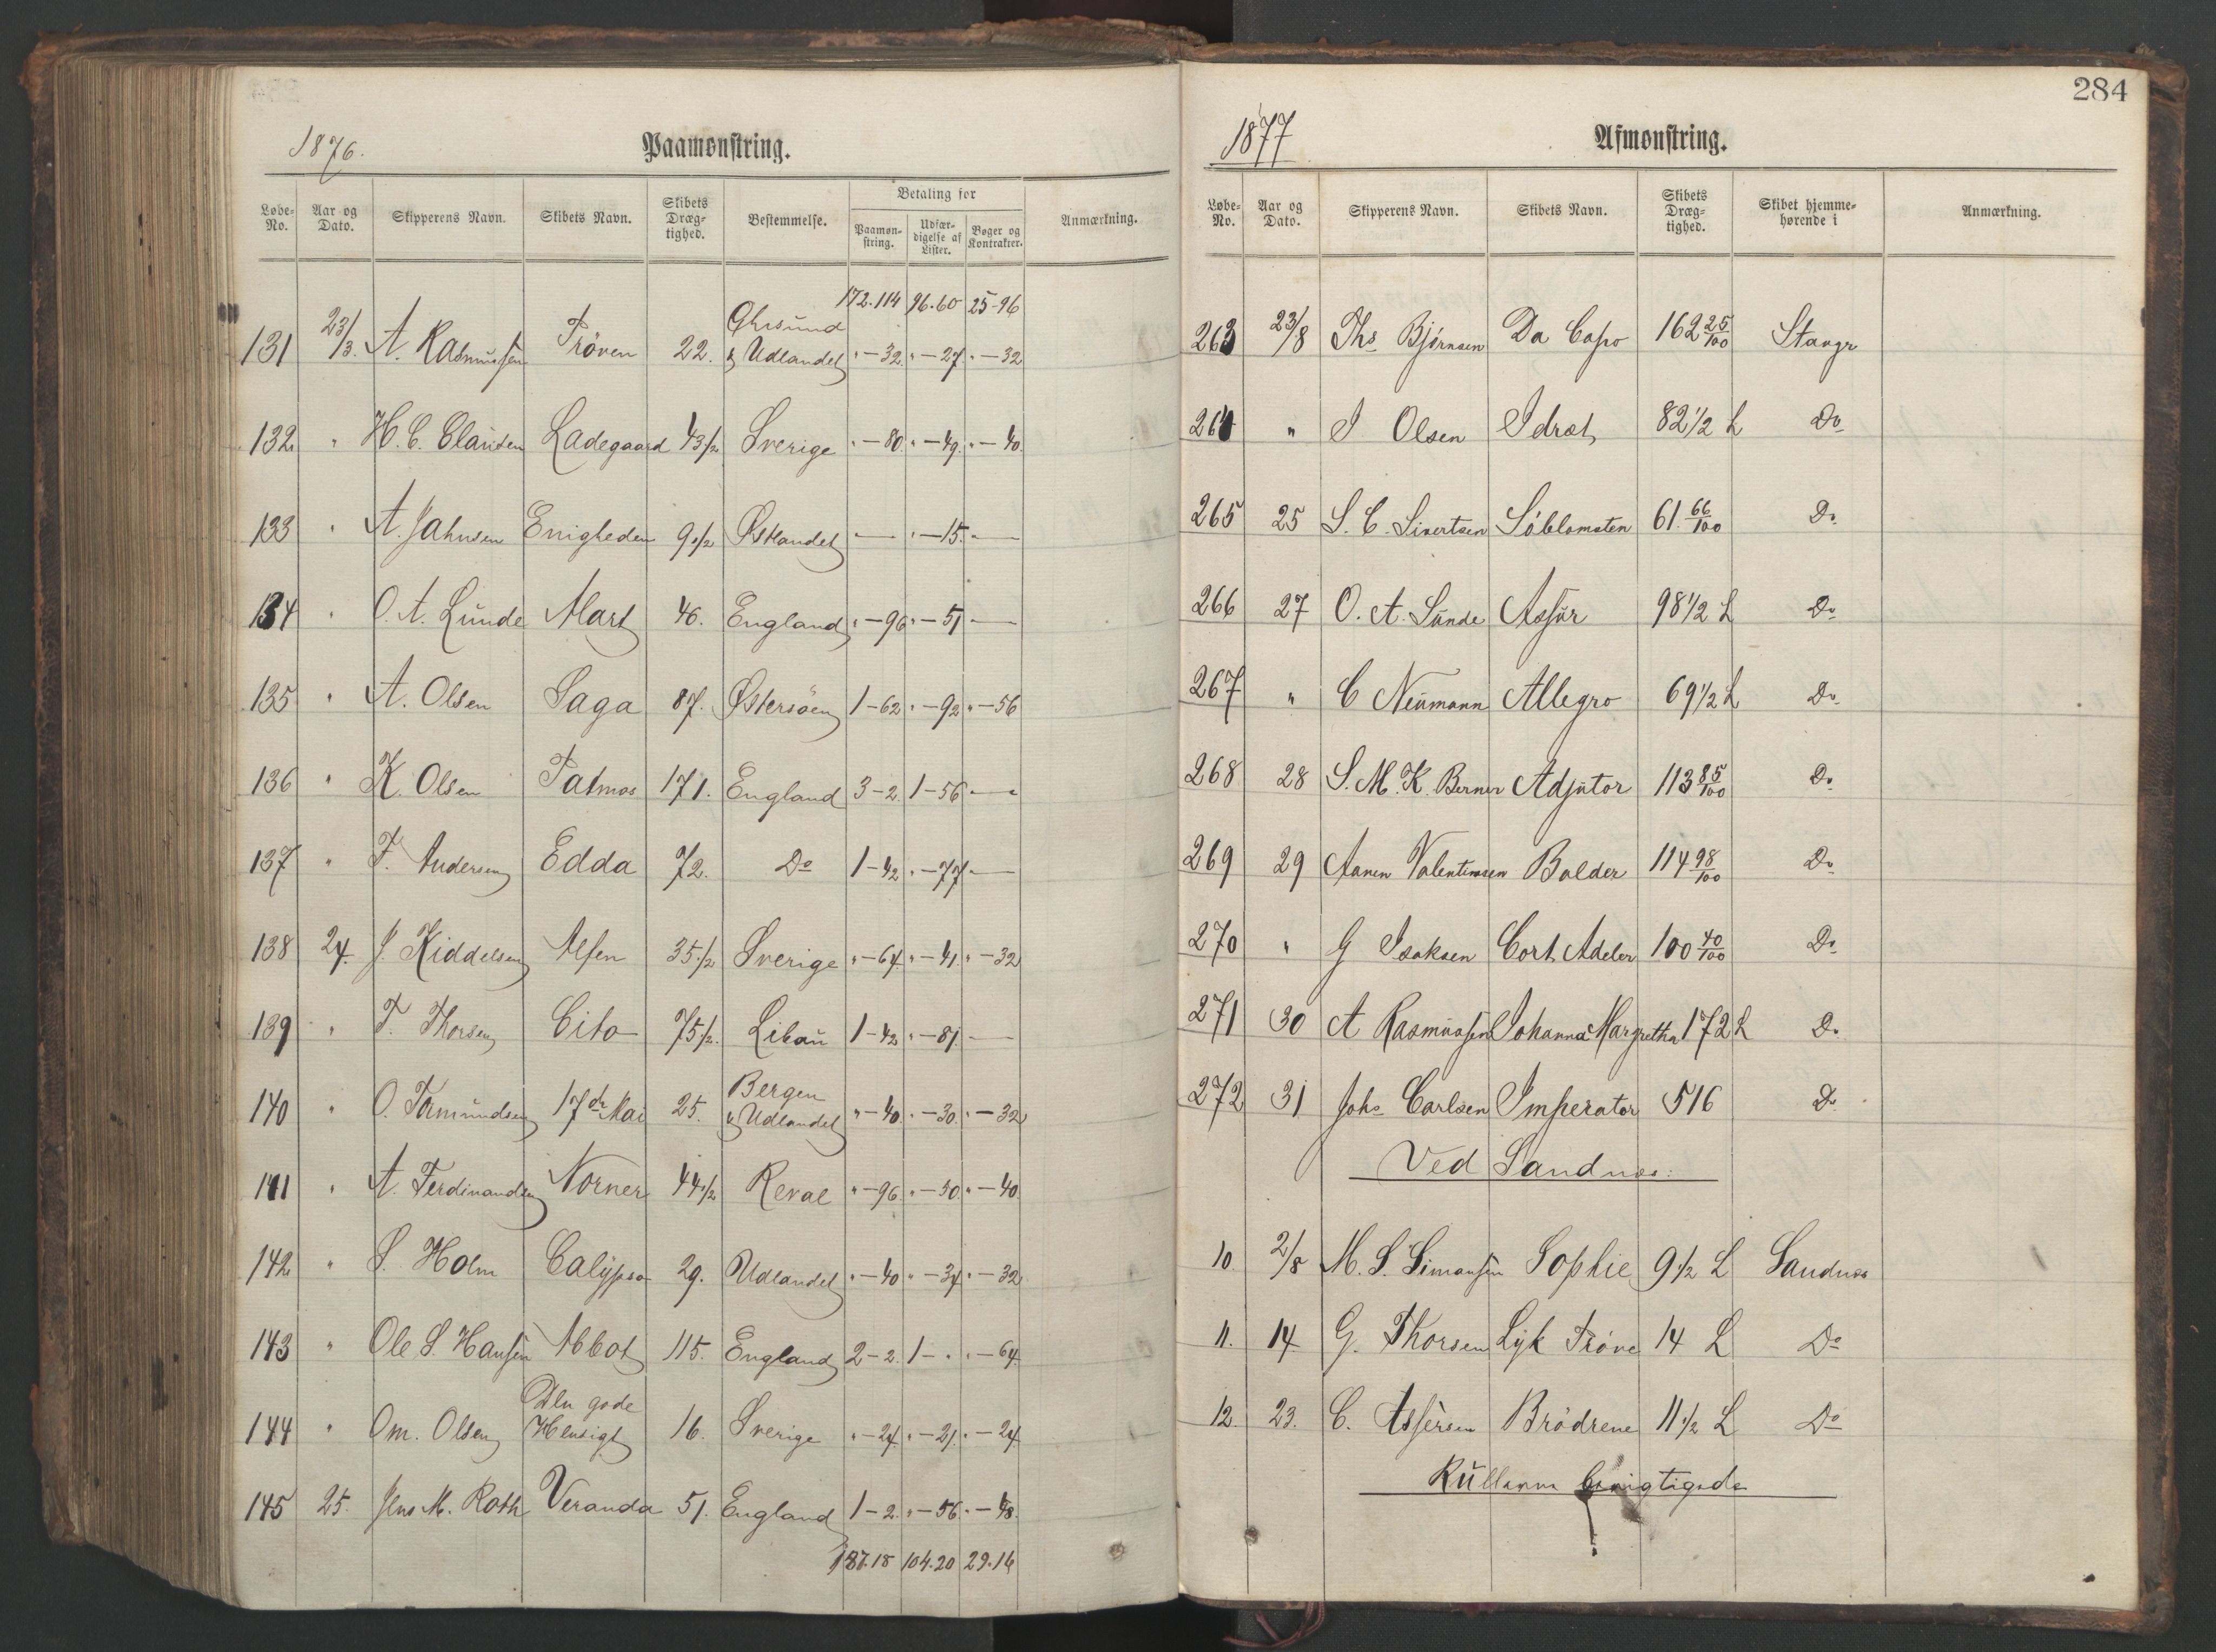 1876.
Paamønstring.
Løbe-No. Aar og Dato. Skipperens Navn. Skibets Navn. Skibets Dræg-tighed. Bestemmelse. Betaling for Paamøn-string. Udfær-digelse af Lister. Bøger og Kontrakter. Anmærkning.
172.114 96.60 25-96
131 23/3. A. Rasmussen Pröven 22. & Udlandet "-32. "-27 "-32
132 " H. C. Clausen Ladegaard 43/2 Sverige "-80. "-49. "-40.
133 " A. Jahnsen Enigheden 9 1/2 Østlandet "— "-15. "—
134 " O. A. Lunde Mart 46. England "-96 "-51 "—
135 " A. Olsen Saga 87. Østersöen 1-62 "-92 "-56
136 " K. Olsen Patmos 171. England 3-2. 1-56 "—
137 " T. Andersen Edda 72. Do 1-42 "-77 "—
138 24. J. Kiddelsen Alfen 35 1/2 Sverige "-64. "-41. "-32
139 " T. Thorsen Cito 75 1/2. Libau 1-42 "-81 "—
140 " O. Tormundsen 17de Mai 25. Bergen & Udlandet "-40. "-30. "-32
141 " A. Ferdinandsen Norner 44 1/2 Reval "-96. "-50. "-40.
142 " S. Holm Calypso 29. Udlandet "-40 "-34 "-32
143 " Ole S. Hansen Abbot 115. England 2-2. 1-" "-64.
144 " Om. Olsen Den gode Hensigt 16. Sverige "-24. "-21. "-24.
145 25. Jens M. Roth Veranda 51. England 1-2. "-56. "-48.
187.18 104.20 29.16
284
1877
Afmønstring.
Løbe-No. Aar og Dato. Skipperens Navn. Skibets Navn. Skibets Dræg-tighed. Skibet hjemme-hørende i Anmærkning.
263 23/8 Ths Bjørnsen Da Capo 162 25/100 Stavgr
264 " I Olsen Idræt 82 1/2 L Do
265 25 S. C. Sivertsen Söblomsten 61. 66/100 Do
266 27 O. A. Sunde Assur 98 1/2 L Do
267 " C Neumann Allegro 69 1/2 L Do
268 28 S. M. K. Berner Adjutor 113 85/100 Do
269 29 Aanen Valentinsen Balder 114 98/100 Do
270 " G Isaksen Cort Adeler 100 40/100 Do
271 30 A Rasmussen Johanna Margretha 172 L Do
272 31 Johs Carlsen Imperator 516 Do
Ved Sandnæs:
10. 2/8 M. S. Simonsen Sophie 9 1/2 L Sandnæs
11. 14. G. Thorsen Lyk Pröve 14 L Do
12. 23. C. Assersen Brödrene 11 1/2 L Do
Rullerne